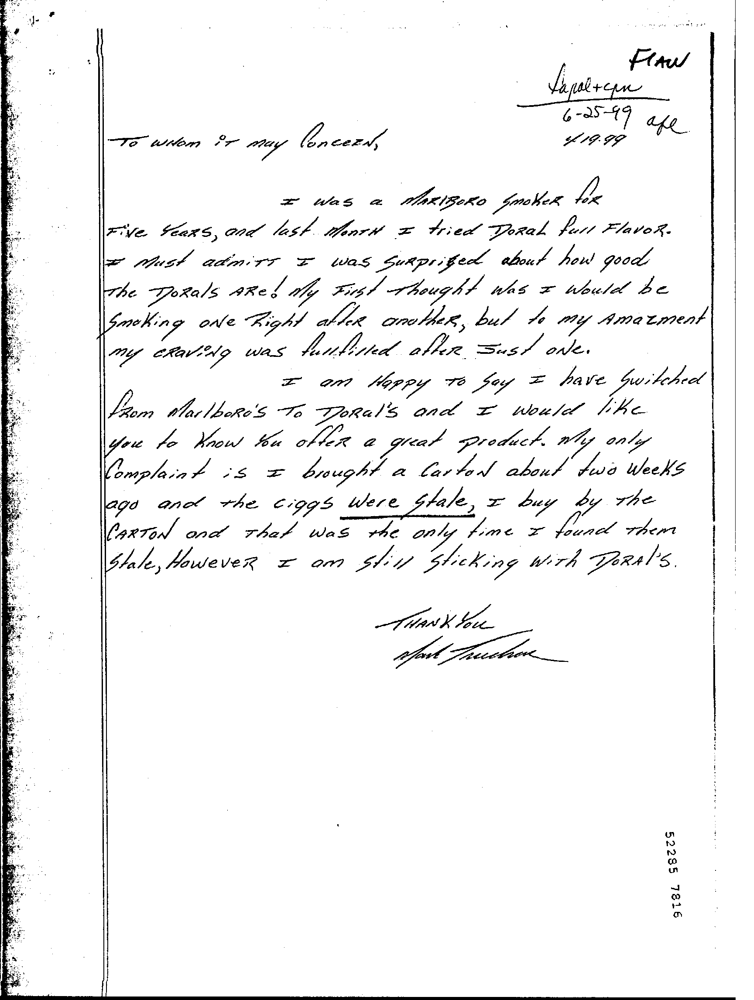 FLAW
6-25-99
419.99
To whom it may Concern,
I was a Marlboro smoker for
Five Years, and last Month I tried Doral full Flavor.
I must admitt I was surprized about how good
the Dorals Are! My First thought was I would be
Smoking one Right after another, but to my Amazment
my craving was fullfilled after Just one.
I am Happy to say I have switched
from Marlboro's To Doral's and I would like
you to Know You offer a great product. My only
Complaint is I brought a Carton about two Weeks
ago and the ciggs were stale, I buy by the
Carton and that was the only time I found them
Stale, However I am still sticking with Doral's.
Thank You
Mark
52285 7816